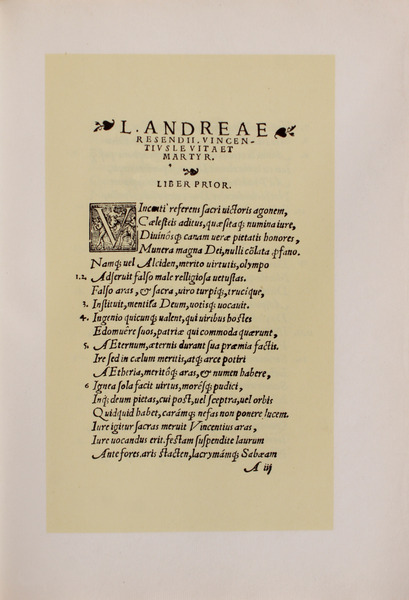 L. ANDREAE
RESENDII. VINCEN-
TIVS LEVITA ET
MARTYR.
LIBER PRIOR.
VIncenti referens sacri uictoris agonem,
Cælesteis aditus, quæsitaq; numina iure,
Diuinósq; canam ueræ pietatis honores,
Munera magna Dei, nulli cõlata ꝓfano.
Namq; uel Alciden, merito uirtutis, olympo
1.2. Adseruit falso male relligiosa uetustas.
Falso aras, & sacra, uiro turpiq;, trucique,
3. Instituit, mentita Deum, uotisq; uocauit.
4. Ingenio quicunq; ualent, qui uiribus hostes
Edomuêre suos, patriæ qui commoda quærunt,
5. AEternum, æternis durant sua præmia factis.
Ire sed in cælum meritis, atq; arce potiri
AEtheria, meritôsq; aras, & numen habere,
6 Ignea sola facit uirtus, morésq; pudici,
Inq; deum pietas, cui post, uel sceptra, uel orbis
Quidquid habet, carámq; nefas non ponere lucem.
Iure igitur sacras meruit Vincentius aras,
Iure uocandus erit. festam suspendite laurum
Ante fores. aris stacten, lacrymámq; Sabæam
A iij